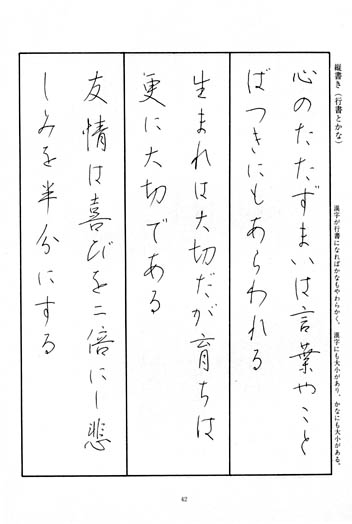 縦書き(行書とかな)
漢字が行書になればかなもやわらかく、漢字にも大小があり、かなにも大小がある。
心のたたずまいは言葉やこと
ばつきにもあらわれる
生まれは大切だが育ちは
更に大切である
友情は喜びを二倍にし悲
しみを半分にする
42